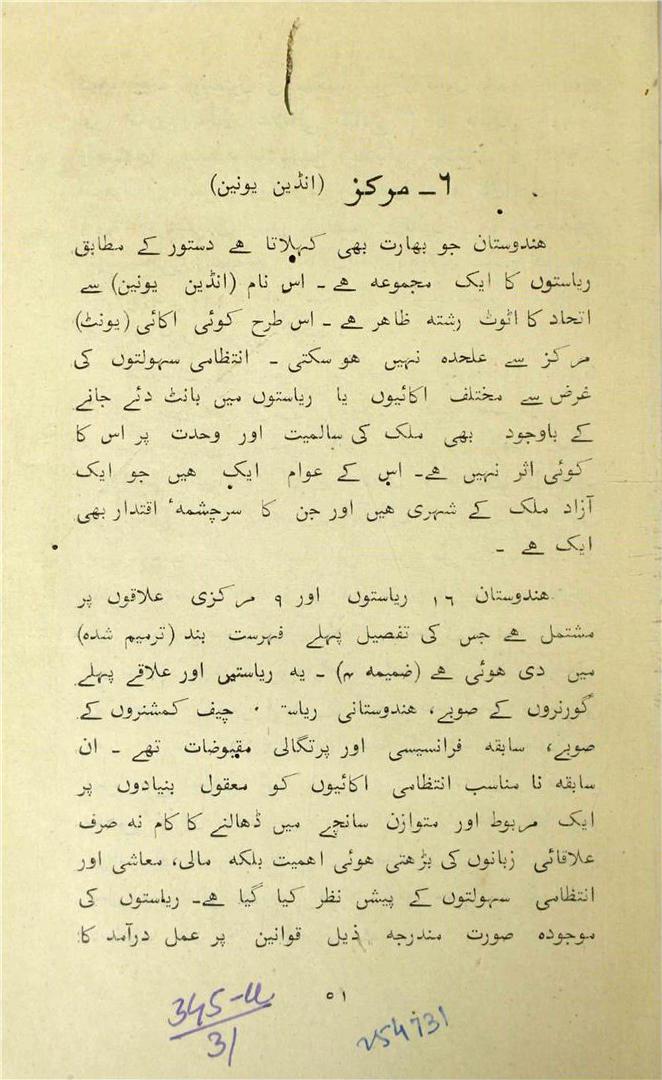 ۶ - مرکز (انڈین یونین)
ہندوستان جو بھارت بھی کہلاتا ہے دستور کے مطابق
ریاستوں کا ایک مجموعہ ہے - اس نام (انڈین یونین) سے
اتحاد کا اٹوٹ رشتہ ظاہر ہے - اس طرح کوئی اکائی (یونٹ)
مرکز سے علحدہ نہیں ہو سکتی - انتظامی سہولتوں کی
غرض سے مختلف اکائیوں یا ریاستوں میں بانٹ دئے جانے
کے باوجود بھی ملک کی سالمیت اور وحدت پر اس کا
کوئی اثر نہیں ہے - اس کے عوام ایک ہیں جو ایک
آزاد ملک کے شہری ہیں اور جن کا سرچشمۂ اقتدار بھی
ایک ہے -
ہندوستان ۱۶ ریاستوں اور ۹ مرکزی علاقوں پر
مشتمل ہے جس کی تفصیل پہلے فہرست بند (ترمیم شدہ)
میں دی ہوئی ہے (ضمیمہ ۴) - یہ ریاستیں اور علاقے پہلے
گورنروں کے صوبے، ہندوستانی ریاست چیف کمشنروں کے
صوبے، سابقہ فرانسیسی اور پرتگالی مقبوضات تھے - ان
سابقہ نا مناسب انتظامی اکائیوں کو معقول بنیادوں پر
ایک مربوط اور متوازن سانچے میں ڈھالنے کا کام نہ صرف
علاقائی زبانوں کی بڑھتی ہوئی اہمیت بلکہ مالی، معاشی اور
انتظامی سہولتوں کے پیش نظر کیا گیا ہے - ریاستوں کی
موجودہ صورت مندرجہ ذیل قوانین پر عمل درآمد کا
۵۱
345-U
31
254731